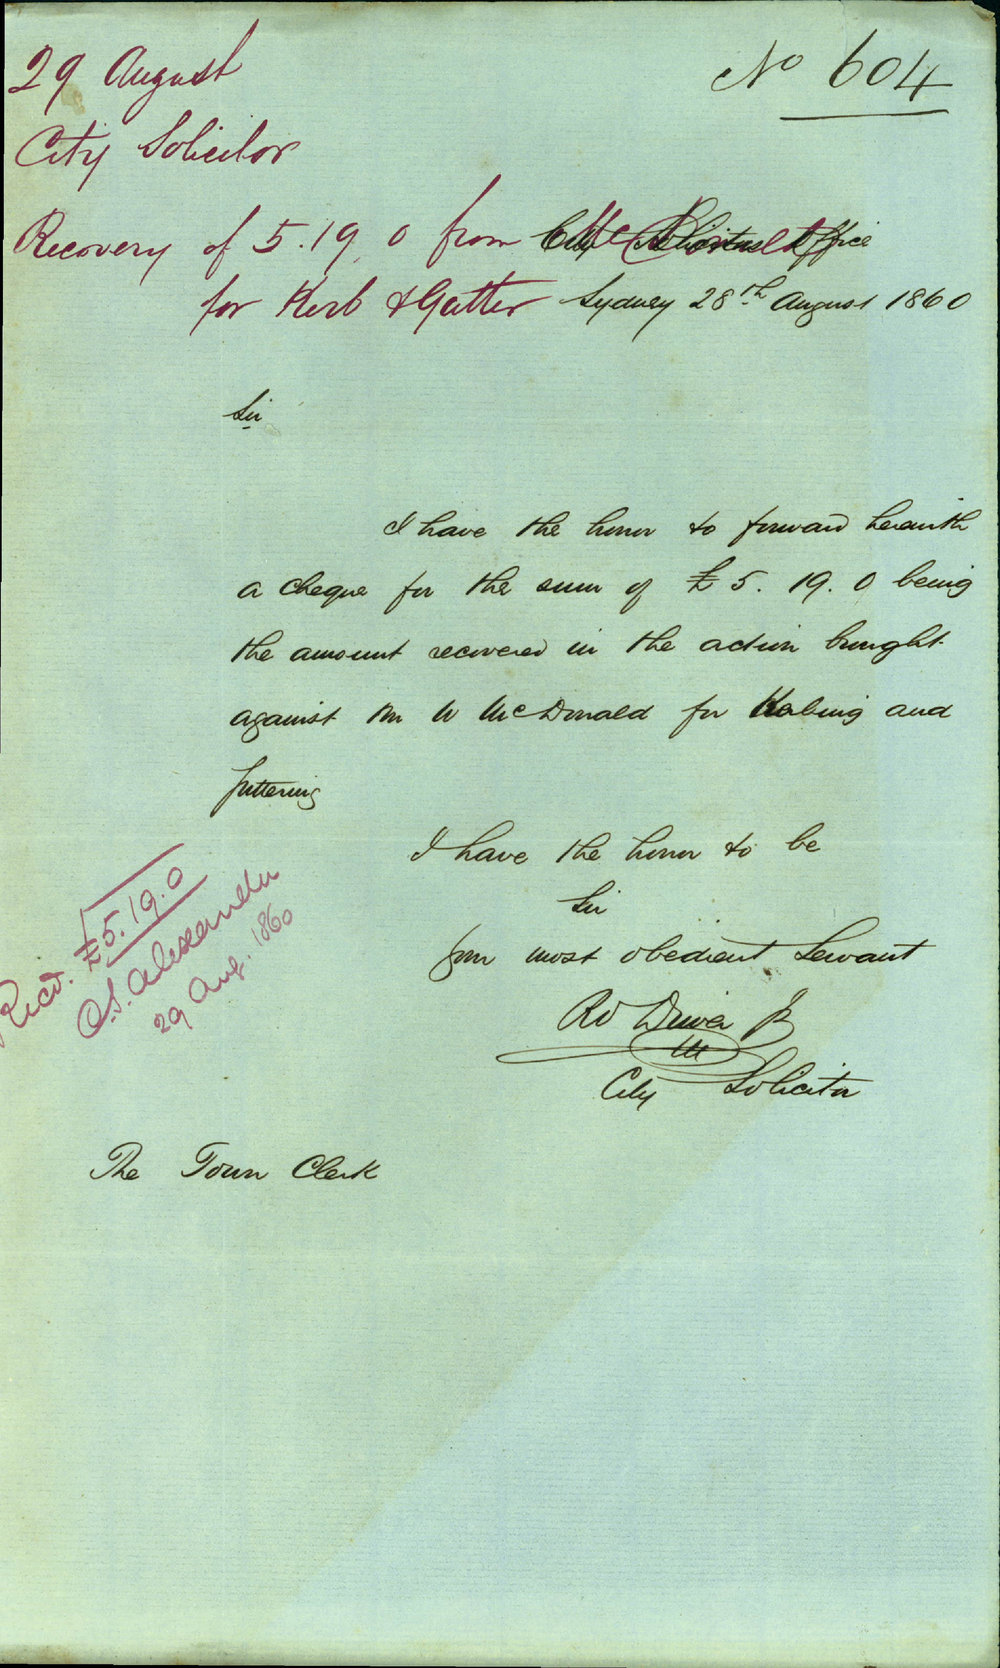 No 604
29 August
City Solicitor
Recovery of 5.19.0 from McDonald
for Kerb & Gutter
City Solicitors Office
Sydney 28th August 1860
Sir
I have the honor to forward herewith
a cheque for the sum of £5. 19. 0 being
the amount recovered in the action brought
against Mr W McDonald for Kerbing and
guttering
I have the honor to be
Sir
your most obedient Servant
Rd Driver Jr
City Solicitor
Recd. £5.19.0
Alexander
29 Aug. 1860
The Town Clerk